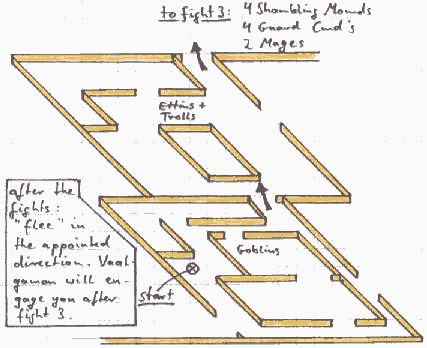 to fight 3: 4 Shambling Mounds
4 Guard Cmd's
2 Mages
Ettins +
Trolls
after the
fights:
"flee" in
the appointed
direction. Vaal-
gamon will en-
gage you after
fight 3.
Goblins
start